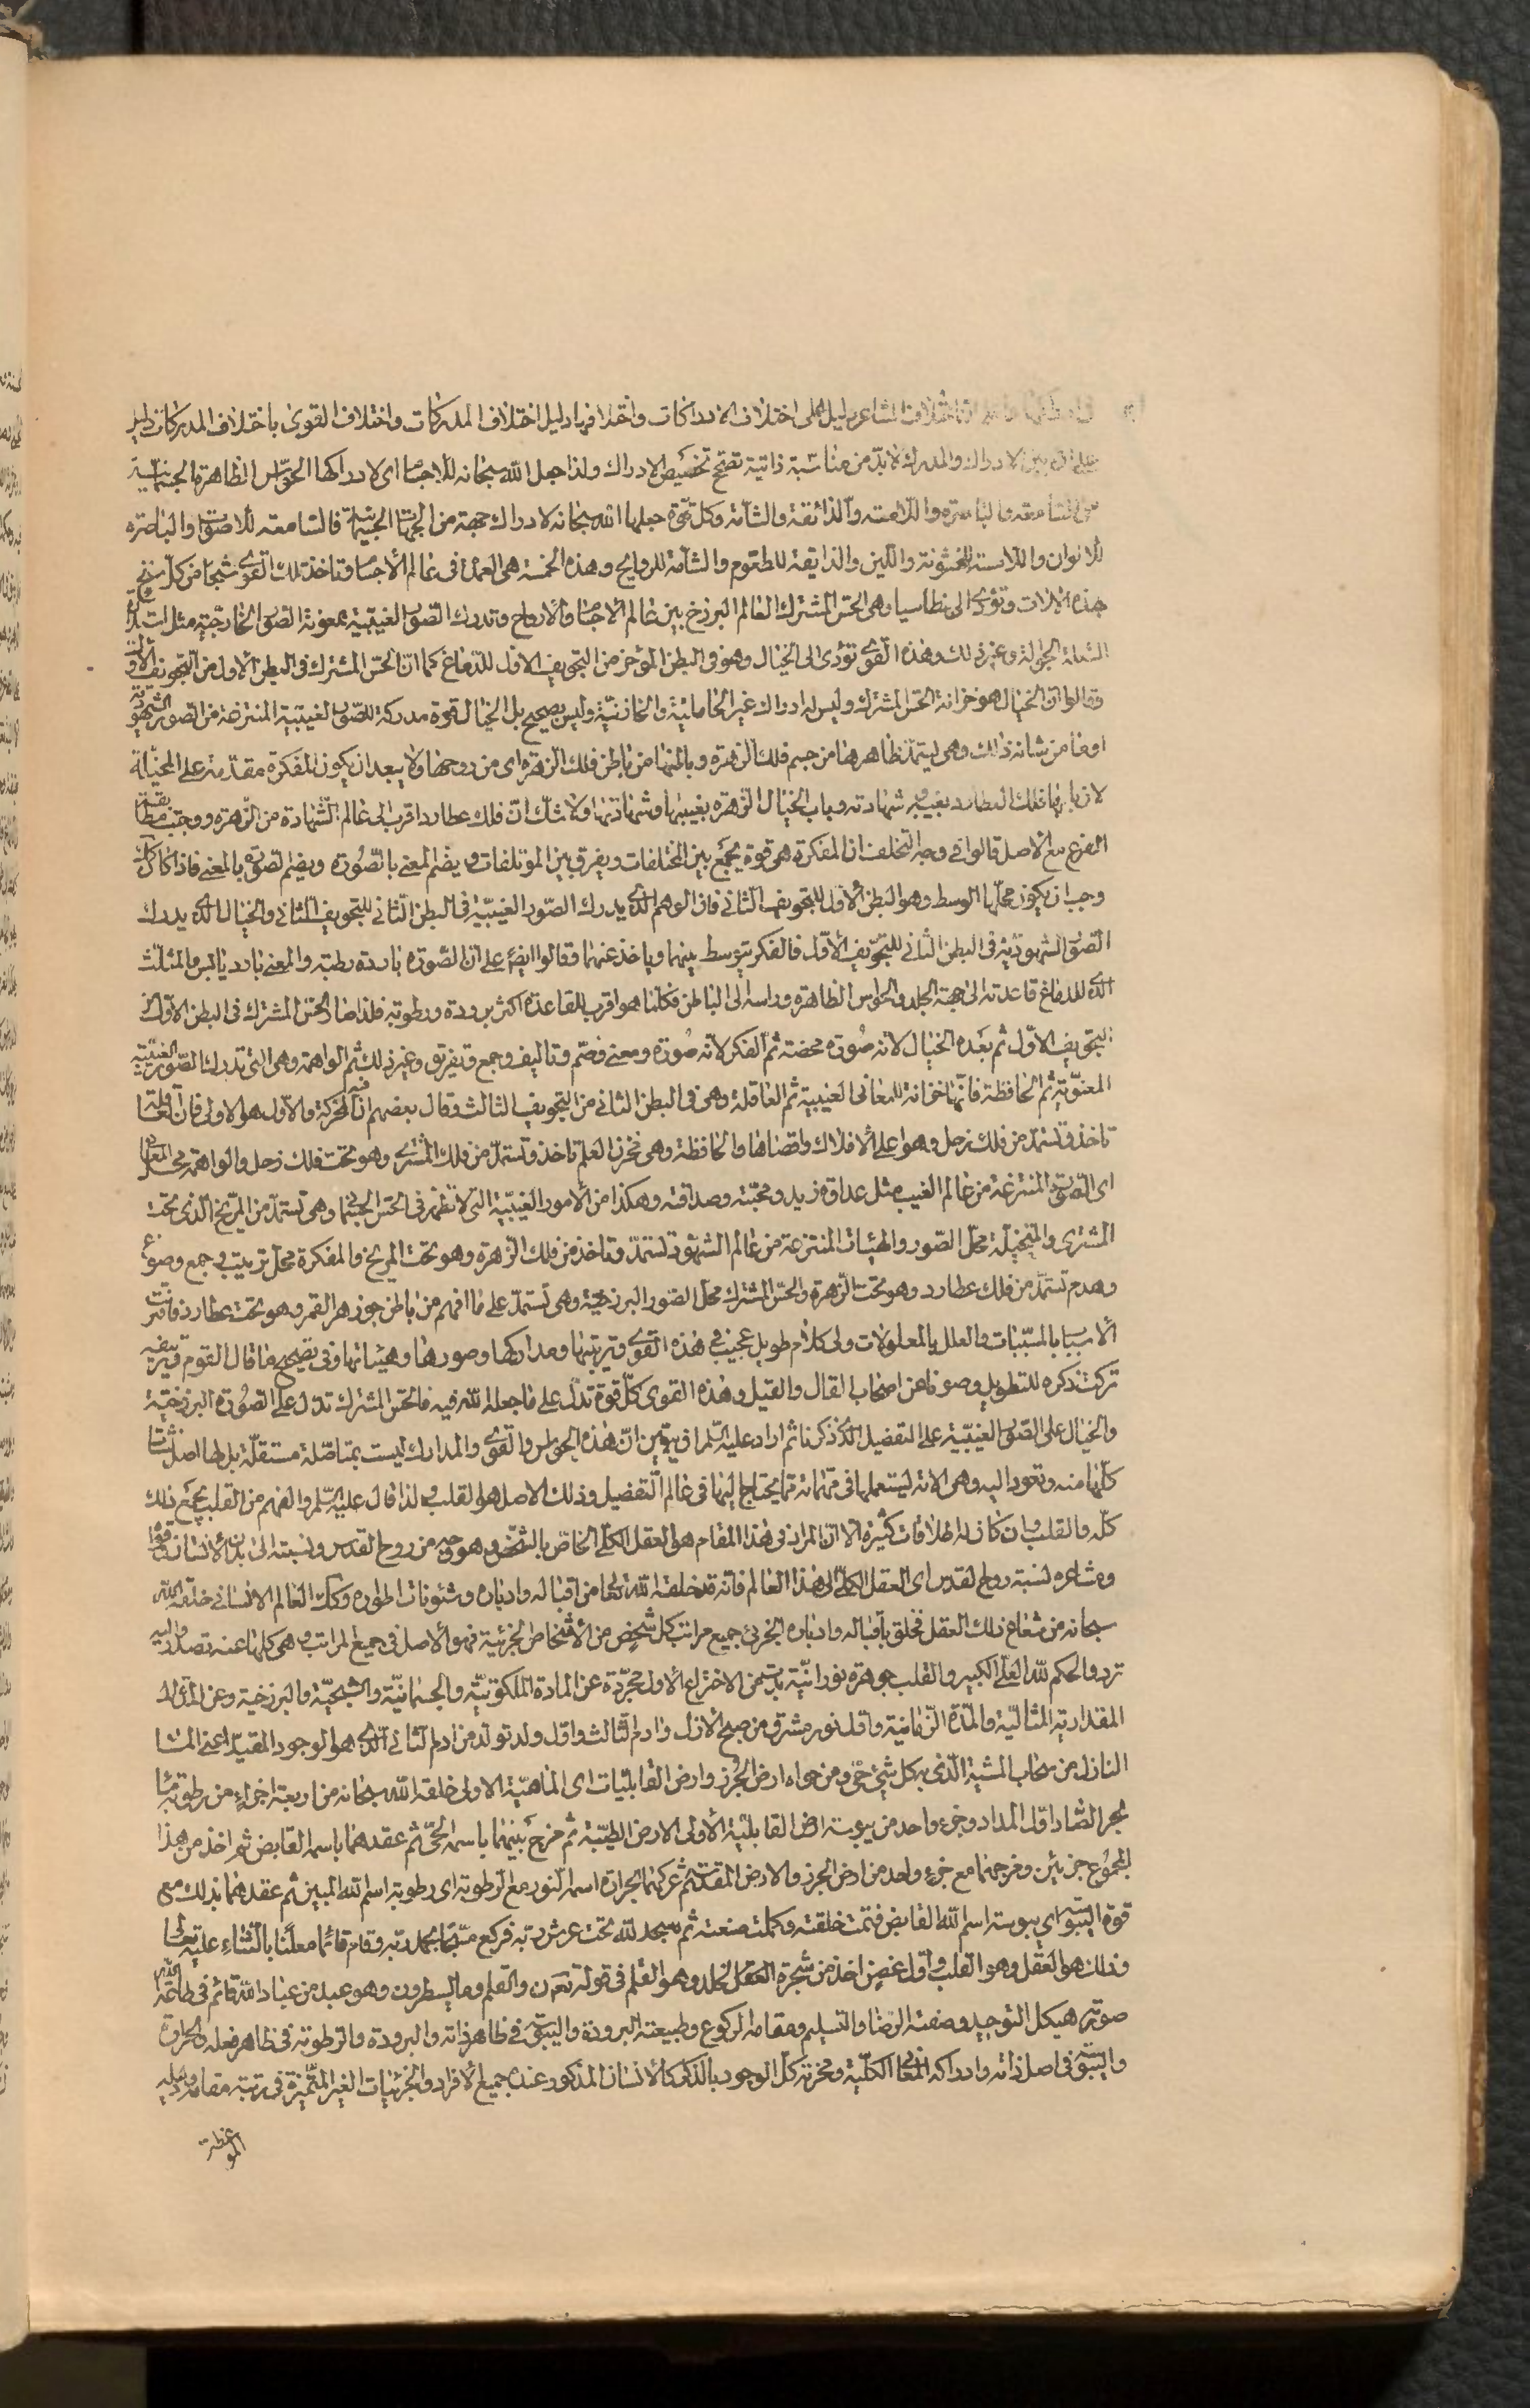 اختلاف المشاعر دليل على اختلاف الادراكات واختلافها دليل اختلاف المدركات واختلاف القوى باختلاف المدركات دليل
على ان بين الادراك والمدرك لابد من مناسبة ذاتية تصحح تخصيص الادراك ولذا جعل الله سبحانه للاجسام اى لادراكها الحواس الظاهرة الجسمانية
من السامعة والباصرة واللامسة والذائقة والشامة وكل قوة جعلها الله سبحانه لادراك جهة من الجهات الجسمانية فالسامعة للاصوات والباصرة
للالوان واللامسة للخشونة واللين والذايقة للطعوم والشامة للروايح وهذه الخمسة هى العمدة فى عالم الاجسام وتاخذ تلك القوى شبحا من كل
هذه الالات وتؤدى الى بنطاسيا وهى الحس المشترك العالم البرزخ بين عالم الاجسام والارواح وتدرك الصور الغيبية بمعونة الصور الخارجية مثل
الشعلة الجوالة وغير ذلك وهذه القوى تؤدى الى الخيال وهو فى البطن المؤخر من التجويف الاول للدماغ كما ان الحس المشترك فى البطن الاول من التجويف الاول
وقالوا ان الخيال هو خزانة الحس المشترك وليس له ادراك غير الحاملية والخازنية وليس بصحيح بل الخيال قوة مدركة للصور الغيبية المنتزعة من الصور الشهودية
او ما من شانه ذلك وهى ليستمد ظاهرها من جسم فلك الزهرة وباطنها من باطن فلك الزهرة اى من روحها ولا يبعد ان يكون المفكرة مقدمة على المخيلة
لان بابها فلك العطارد بغيبه وشهادته وباب الخيال الزهرة بغيبها وشهادتها ولا شك ان فلك عطارد اقرب الى عالم الشهادة من الزهرة ووجب مطابقة
الفرع مع الاصل قالوا فى وجه التخلف ان المفكرة هى قوة يجمع بين المختلفات ويفرق بين المؤتلفات ويضم المعنى بالصورة ويضم الصورة بالمعنى فاذا كان كذلك
وجب ان يكون محلها الوسط وهو البطن الاول للتجويف الثانى فان الوهم الذى يدرك الصور الغيبية فى البطن الثانى للتجويف الثانى والخيال الذى يدرك
الصور الشهودية فى البطن الثانى للتجويف الاول فالفكر يتوسط بينهما وياخذ عنهما وقالوا ايضا على ان الصورة باردة رطبة والمعنى بارد يابس والمثلث
الذى للدماغ قاعدته الى جهة الجلد والحواس الظاهرة وراسه الى الباطن فكلما هو اقرب للقاعدة اكثر برودة ورطوبة فلذا صار الحس المشترك فى البطن الاول من
التجويف الاول ثم بعده الخيال لانه صورة محضة ثم الفكر لانه صورة ومعنى وضم وتاليف وجمع وتفريق وغير ذلك ثم الواهمة وهى التى تدرك الصور الغيبية
المعنوية ثم الحافظة فانها خزانة للمعانى الغيبية ثم العاقلة وهى فى البطن الثانى من التجويف الثالث وقال بعضهم ان فيه المحركة والاول هو الاولى فان العاقلة
تاخذ وتستمد من فلك زحل وهو اعلى الافلاك واقصاها والحافظة وهى مخزن العلم تاخذ وتستمد من فلك المشترى وهو تحت فلك زحل والواهمة محل المعانى
اى الصور المنتزعة من عالم الغيب مثل عداوة زيد ومحبته وصداقته وهكذا من الامور الغيبية التى لا تظهر فى الحس الجسمانى وهى تستمد من المريخ الذى تحت
المشترى والمتخيلة محل الصور والهيئات المنتزعة من عالم الشهود تستمد وتاخذ من فلك الزهرة وهو تحت المريخ والمفكرة محل ترتيب وجمع وصوغ
وهدم تستمد من فلك عطارد وهو تحت الزهرة والحس المشترك محل الصور البرزخية وهى تستمد على ما افهم من باطن جوزهر القمر وهو تحت عطارد فاقترنت
الاسباب بالمسببات والعلل بالمعلولات ولى كلام طويل عجيب فى هذه القوى وتربيتها ومداركها وصورها وهيئاتها وفى تصحيح ما قال القوم وتزييفه
تركت ذكره للتطويل وصونا عن اصحاب القال والقيل وهذه القوى كل قوة تدل على ما جعله الله فيه فالحس المشترك تدل على الصورة البرزخية
والخيال على الصور الغيبية على التفصيل الذى ذكرنا ثم اراد عليه السلام ان يبين ان هذه الحواس والقوى والمدارك ليست بمتاصلة مستقلة بل لها اصل نشات
كلها منه وتعود اليه وهى الاته ليستعملها فى مهماته مما يحتاج اليها فى عالم التفصيل وذلك الاصل هو القلب ولذا قال عليه السلام والفهم من القلب يجمع ذلك
كله والقلب وان كان له اطلاقات كثيرة الا ان المراد فى هذا المقام هو العقل الكلى الخاص بالشخص وهو وجه من روح القدس ونسبته الى بدن الانسان وقواه
ومشاعره نسبة روح القدس اى العقل الكلى الى هذا العالم فانه قد خلقه الله تعالى من اقباله وادباره وشئونات اطواره وكك العالم الانسانى خلقه الله
سبحانه من شعاع ذلك العقل فخلق باقباله وادباره الجزئى جميع مراتب كل شخص من الاشخاص الجزئية فهو الاصل فى جميع المراتب وهى كلها عنه تصدر واليه
ترد والحكم لله العلى الكبير والقلب جوهرة نورانية بدئت من الاختراع الاول مجردة عن المادة الملكوتية والجسمانية والشبحية والبرزخية وعن المدة
المقدارية المثالية والمدة الزمانية واول نور مشرق من صبح الازل وادم الثالث واول ولد تولد من ادم الثانى الذى هو الوجود المقيد اعنى الماء
النازل من سحاب المشية الذى به كل شئ حى ومن حواء ارض الجرز وارض القابليات اى الماهية الاولى خلقه الله سبحانه من اربعة اجزاء من رطوبة ماء
بحر الصاد اول المداد وجزء واحد من يبوسة ارض القابلية الاولى الارض الطيبة ثم مزج بينهما باسمه الحى ثم عقدهما باسمه القابض ثم اخذ من هذا
المجموع جزئين ومزجهما مع جزء واحد من ارض الجرز والارض المقدسة ثم عركهما بحرارة اسمه النور مع الرطوبة اى رطوبة اسم الله المبين ثم عقدهما بذلك مع
قوة اليبوسة اى يبوسة اسم الله القابض فتمت خلقته وكملت صنعته ثم سجد لله تحت عرش ربه فركع مسبحا بحمد ربه وقام قائما معلنا بالثناء عليه تعالى
وذلك هو العقل وهو القلب واول غصن اخذ من شجرة العقل الخلد وهو القلم فى قوله تع ن والقلم وما يسطرون وهو عبد من عباد الله قائم فى طاعة الله
صورته هيكل التوحيد وصفته الرضا والتسليم ومقامه الركوع وطبيعته البرودة واليبوسة فى ظاهر ذاته والبرودة والرطوبة فى ظاهر فعله والحرارة
واليبوسة فى اصل ذاته وادراكه المعانى الكلية ومخزنه كل الوجود بالذكر كالانسان المذكور عنده جميع الافراد والجزئيات الغير المتميزة فى رتبة مقامه ودليله
الموعظة